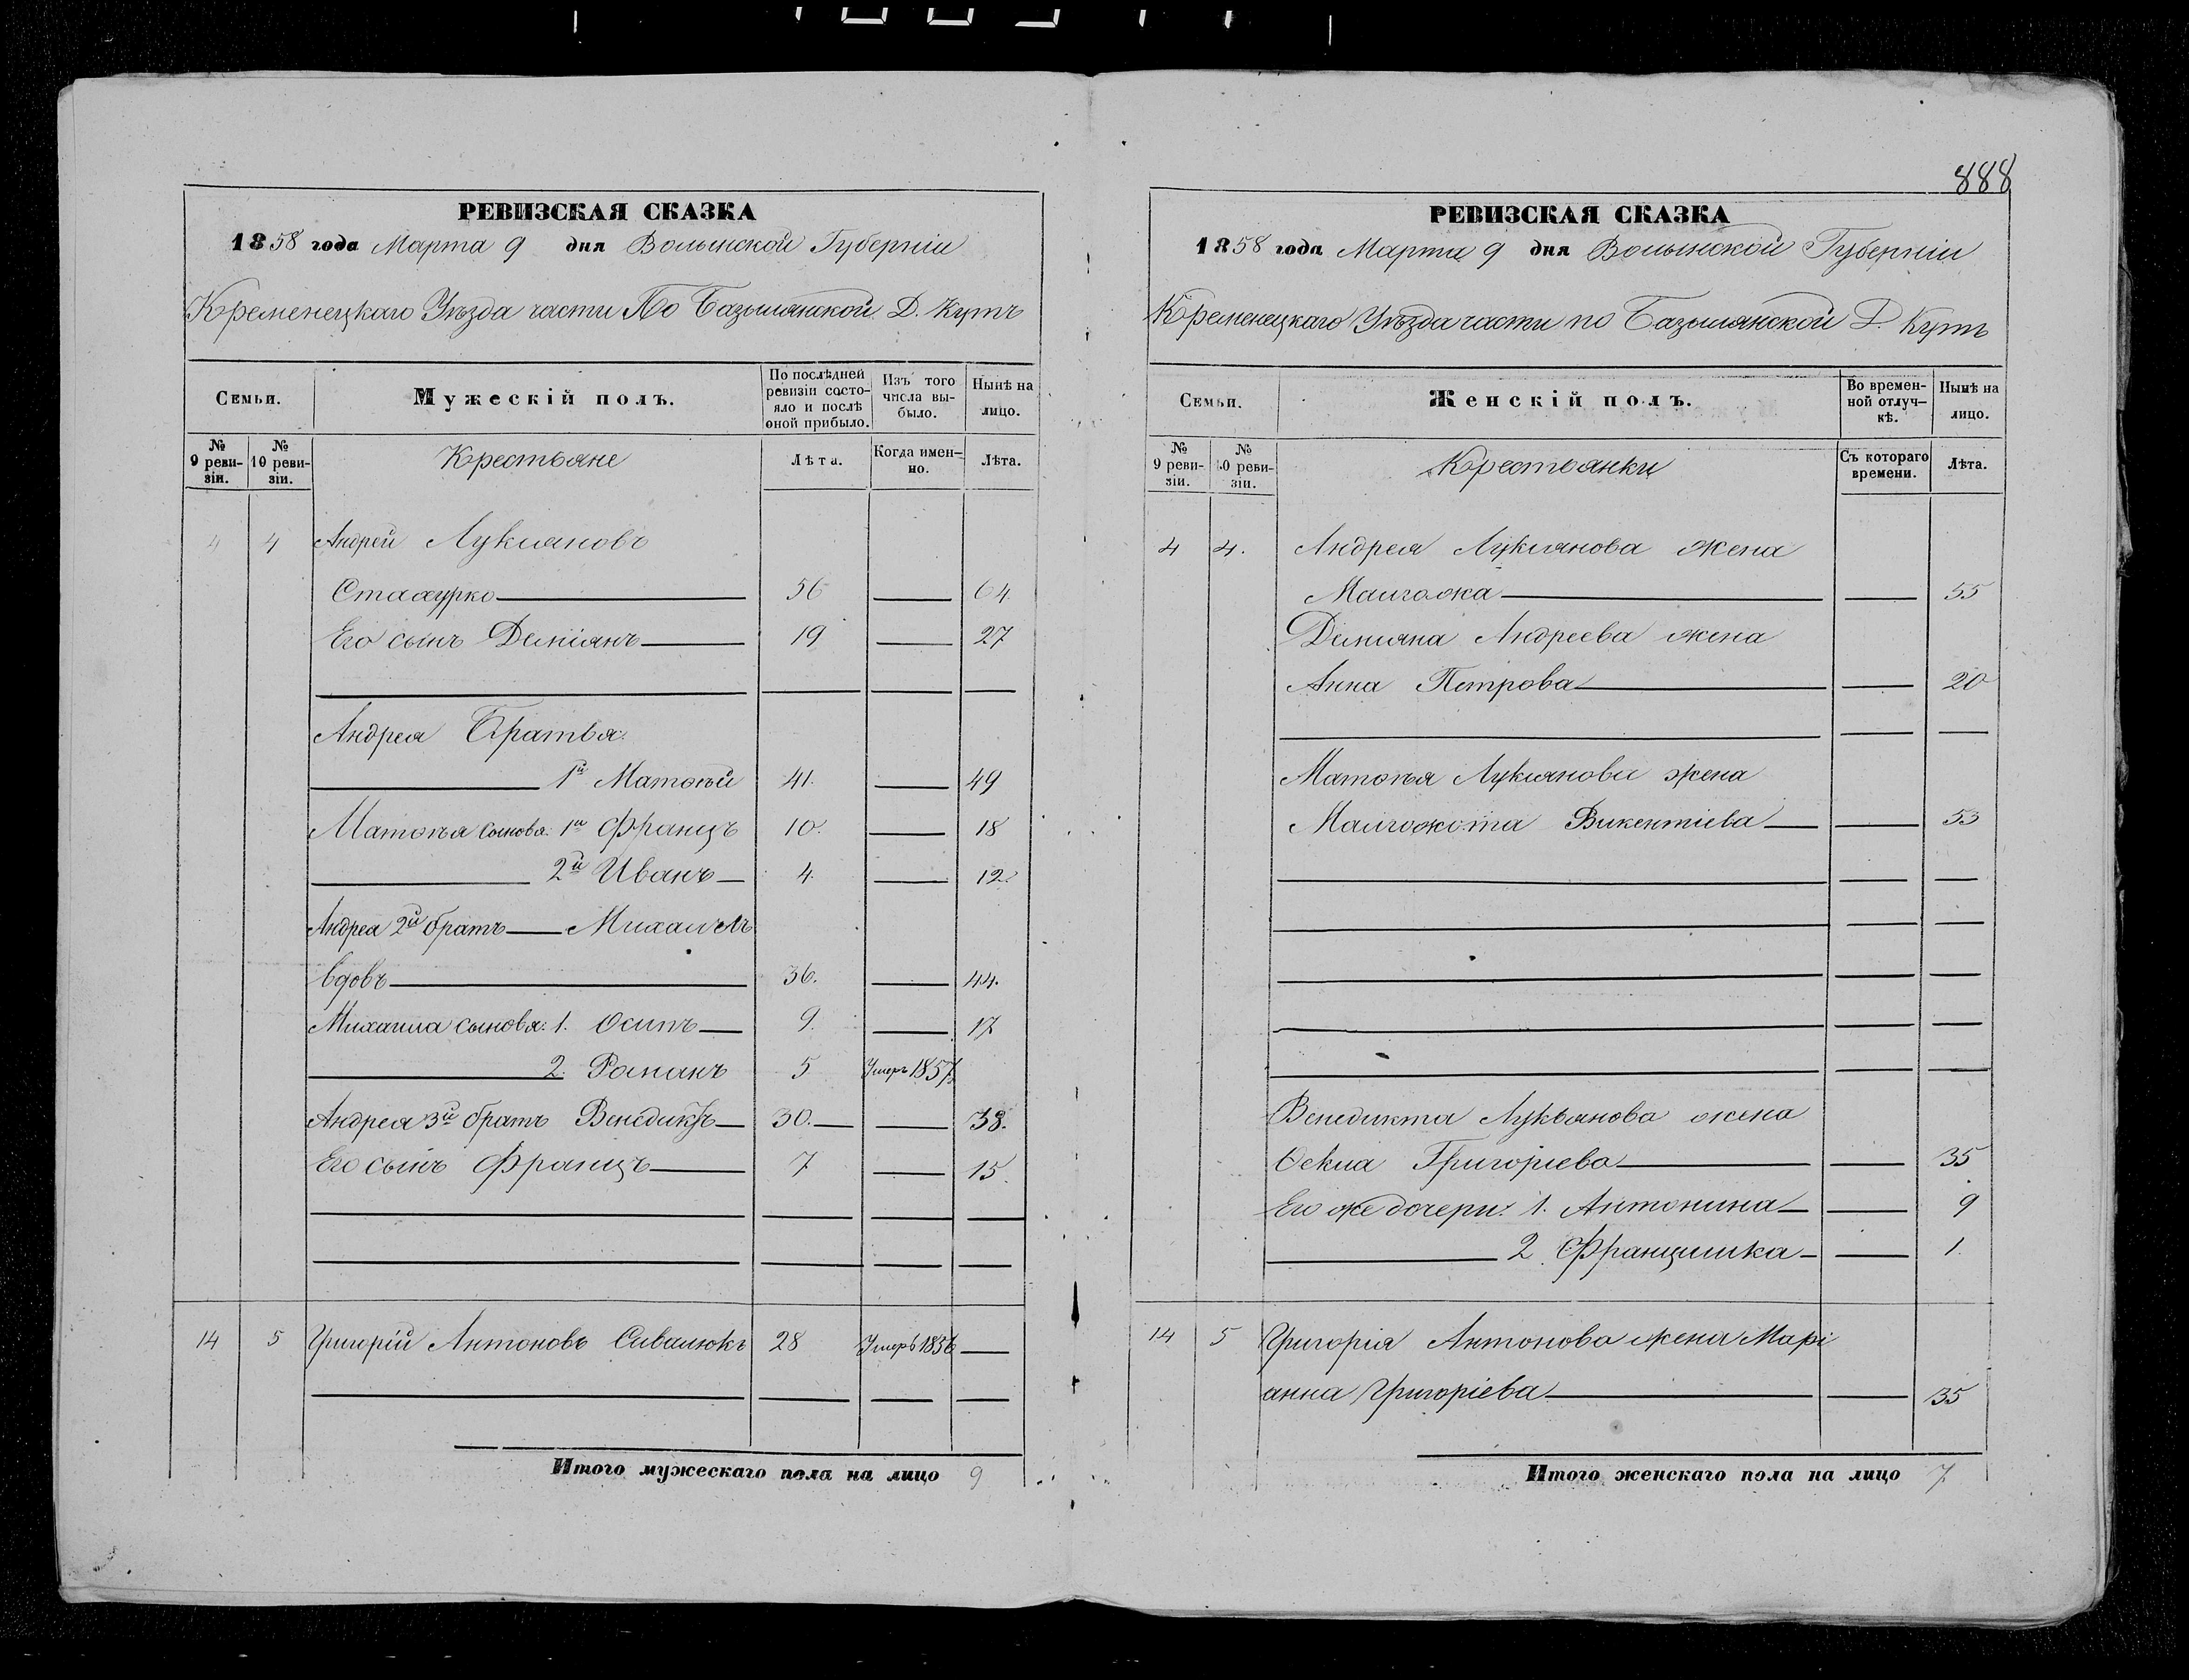 РЕВИЗСКАЯ СКАЗКА
1858 года Марта 9 дня Волынской Губерніи
Кременецкаго Уѣзда части По Базылянской Д. Кутъ
Семьи.
Мужескій полъ.
По послѣдней ревизіи состояло и послѣ оной прибыло.
Изъ того числа выбыло.
Нынѣ на лицо.
№ 9 ревизіи.
№ 10 ревизіи.
Крестьяне
Лѣта.
Когда именно.
Лѣта.
4 4 Андрей Лукияновъ
Стахурко 56 64
Его сынъ Деміянъ 19 27
Андрея Братья:
1й Матѳѣй 41. 49
Матѳѣя сыновя: 1й Францъ 10. 18
2й Иванъ 4. 12.
Андрея 2й братъ Михаилъ
вдовъ 36. 44.
Михаила сыновя: 1. Осипъ 9. 17
2. Романъ 5 Умеръ 1857
Андрея 3й братъ Венедиктъ 30. 38.
Его сынъ Францъ 7 15.
14 5 Григорій Антоновъ Савалюкъ 28 Умеръ 1856
Итого мужескаго пола на лицо 9
888
РЕВИЗСКАЯ СКАЗКА
1858 года Марта 9 дня Волынской Губерніи
Кременецкаго Уѣзда части по Базылянской Д. Кутъ
Семьи.
Женскій полъ.
Во временной отлучкѣ.
Нынѣ на лицо.
№ 9 ревизіи.
№ 10 ревизіи.
Крестьянки
Съ котораго времени.
Лѣта.
4 4. Андрея Лукиянова жена
55
Демияна Андреева жена
Анна Петрова 20
Матѳѣя Лукиянова жена
Викентіева 53
Венедикта Лукьянова жена
Григоріева 35
Его же дочери: 1. Антонина 9
2. Францишка 1.
14 5 Григорія Антонова жена Марі
анна Григоріева 35
Итого женскаго пола на лицо 7